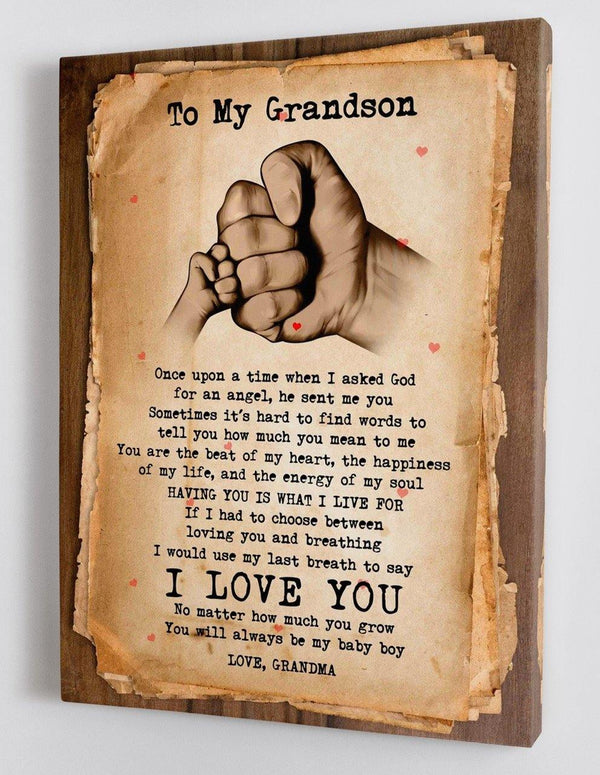 To My Grandson
Once upon a time when I asked God
for an angel, he sent me you
Sometimes it's hard to find words to
tell you how much you mean to me
You are the beat of my heart, the happiness
of my life, and the energy of my soul
HAVING YOU IS WHAT I LIVE FOR
If I had to choose between
loving you and breathing
I would use my last breath to say
I LOVE YOU
No matter how much you grow
You will always be my baby boy
LOVE, GRANDMA